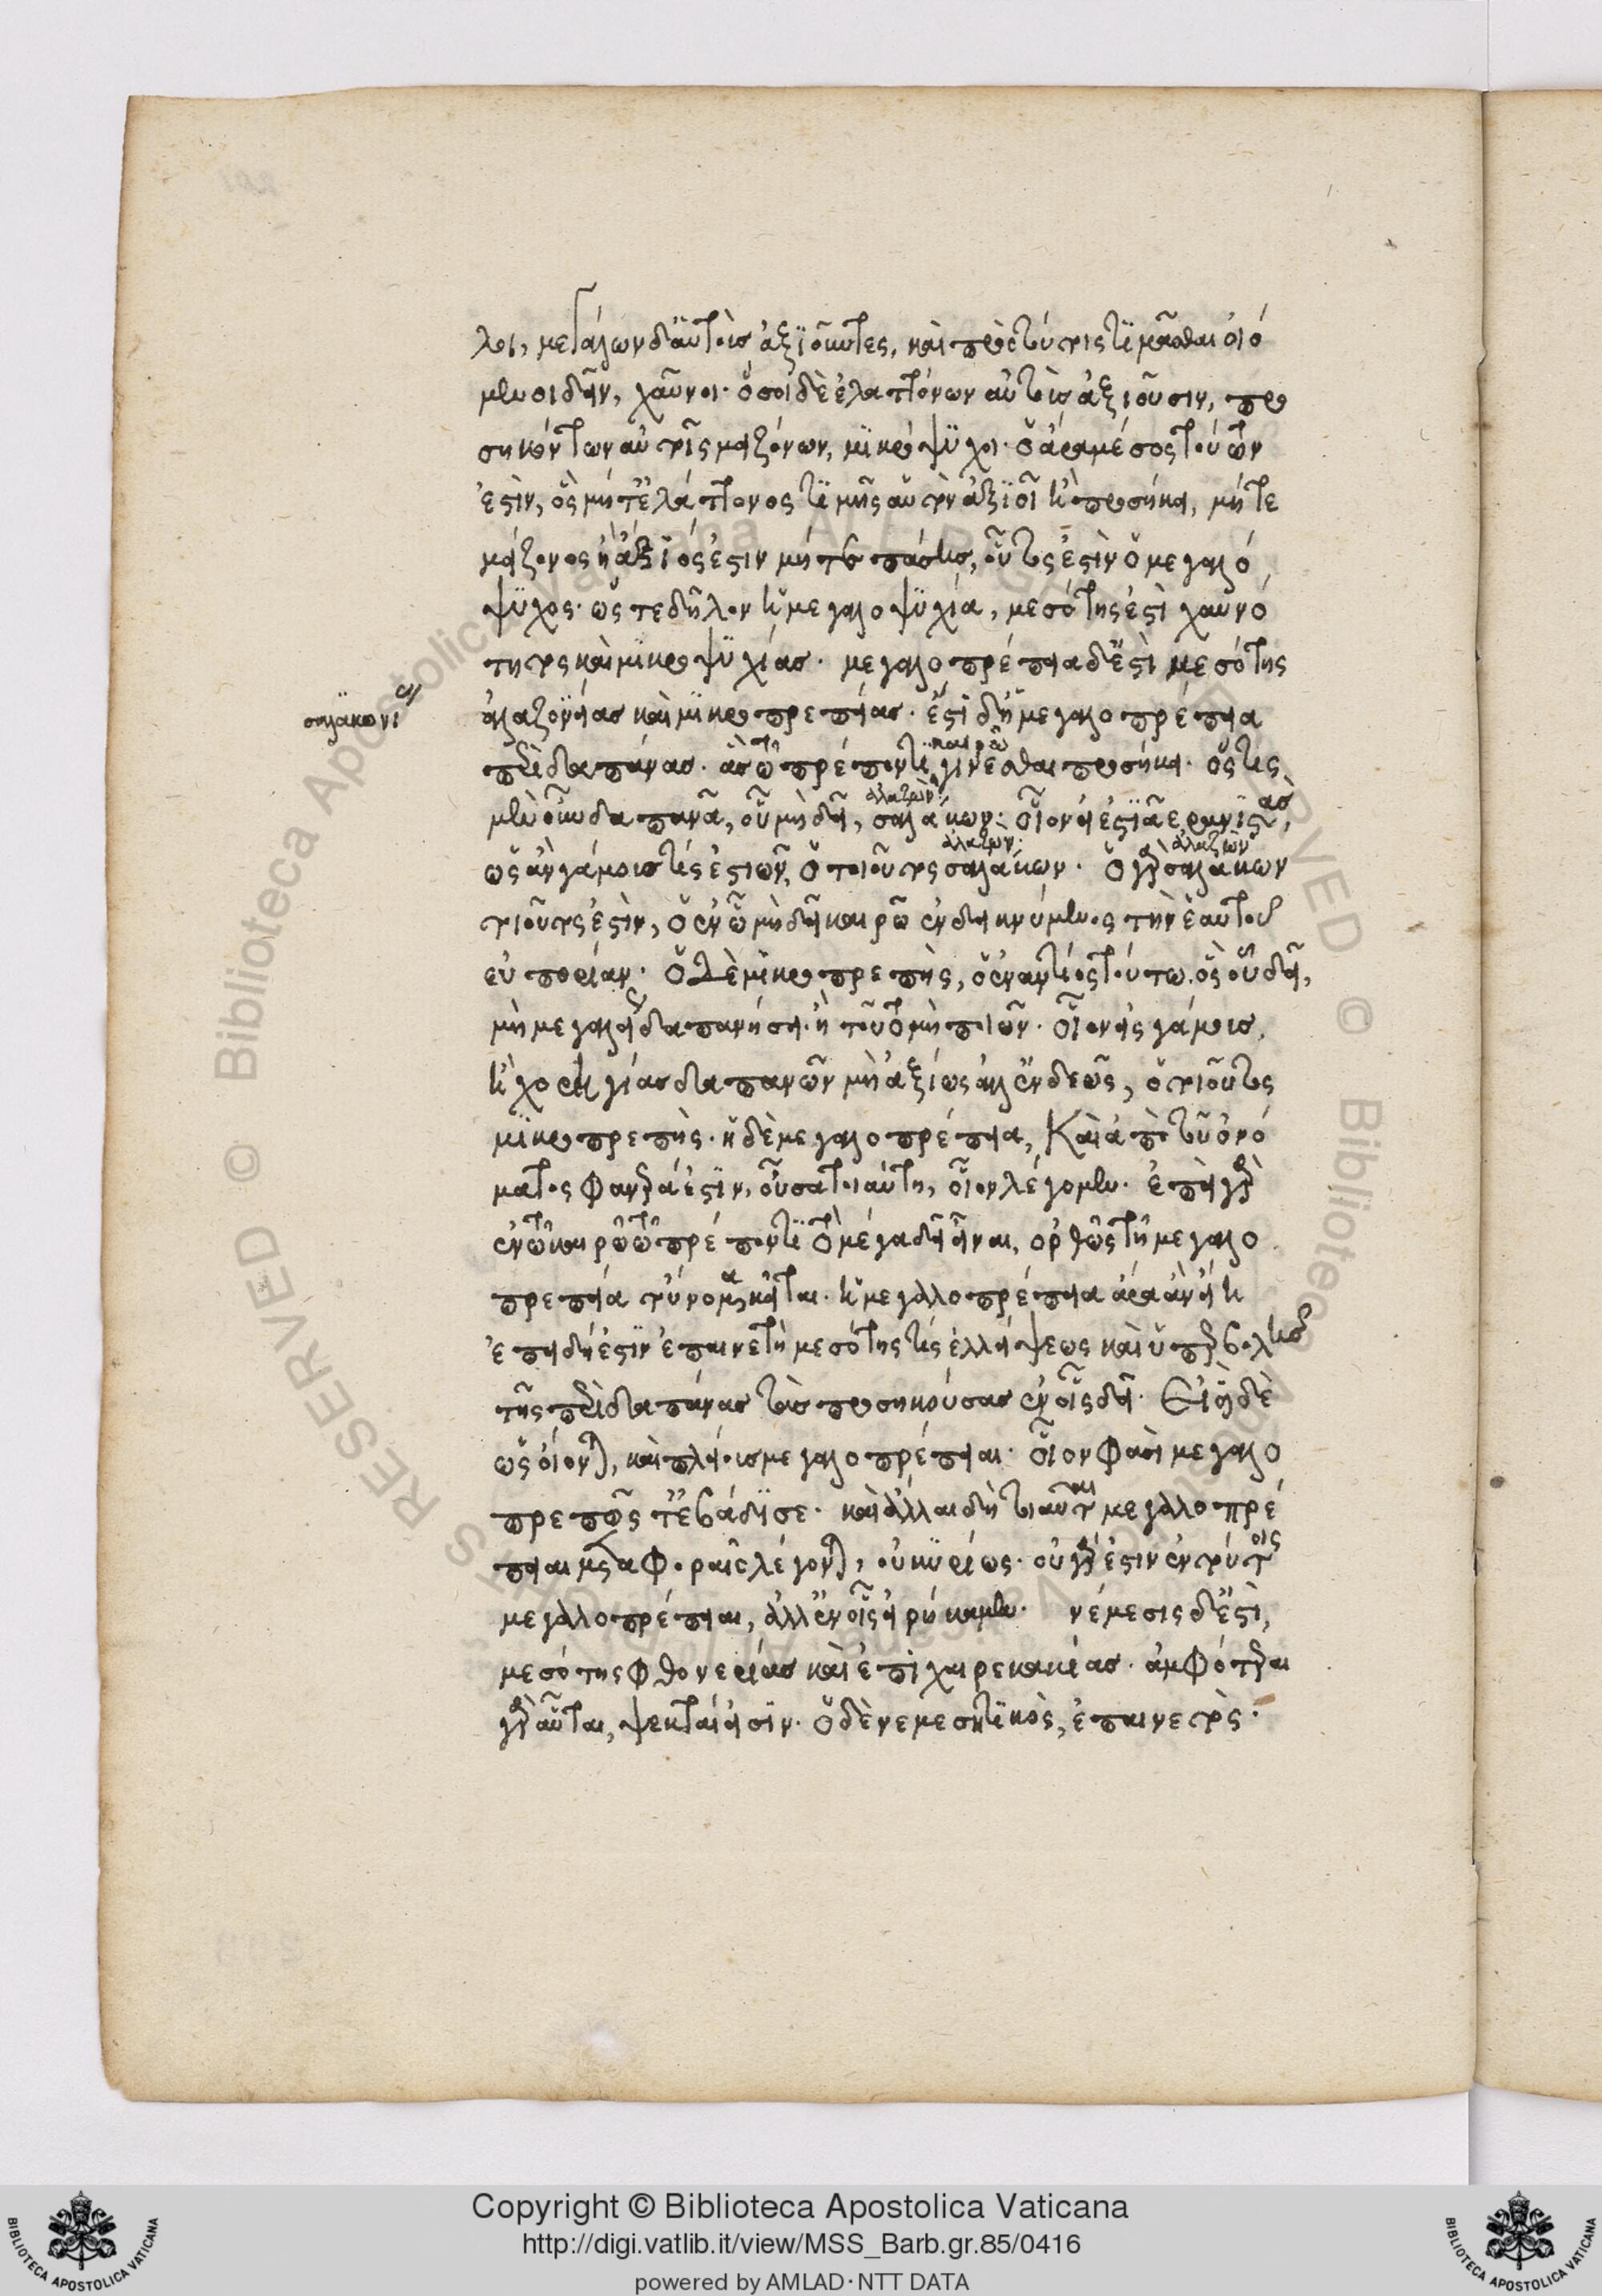 λοι, μεγάλων δ' αὑτοὺς ἀξιοῦντες, καὶ πρὸς τούτοις τιμᾶσθαι οἰό
μενοι δεῖν, χαῦνοι· ὅσοι δὲ ἐλαττόνων αὑτοὺς ἀξιοῦσιν, προ
σηκόντων αὐτοῖς μειζόνων, μικρόψυχοι· ὁ ἄρα μέσος τούτων
ἐστὶν, ὃς μήτ' ἐλάττονος τιμῆς αὑτὸν ἀξιοῖ ἢ προσήκει, μήτε
μείζονος ἢ ἄξιός ἐστιν μήτε πάσης, οὗτος ἐστὶν ὁ μεγαλό
ψυχος· ὥστε δῆλον ἡ μεγαλοψυχία, μεσότης ἐστὶ χαυνό
τητος καὶ μικροψυχίας. μεγαλοπρέπεια δ' ἐστὶ μεσότης
σαλακωνι
ἀλαζονείας καὶ μικροπρεπείας· ἔστι δὴ ἡ μεγαλοπρέπεια
καιρῶ
περὶ δαπάνας· ἃς ἐν τῶ πρέποντι γίνεσθαι προσήκει· ὅστις
ἀλαζὼν
μὲν οὖν δαπανᾶ, οὗ μὴ δεῖ, σαλάκων· οἷον εἰ ἑστιᾶ ἐρανιστὰς,
ἀλαζὼν ἀλαζὼν
ὡς ἂν γάμοις τίς ἑστιῶν, ὁ τοιοῦτος σαλάκων· ὁ γὰρ σαλάκων
τοιοῦτος ἐστὶν, ὁ ἐν ὧ μὴ δεῖ καιρῶ ἐνδεικνύμενος τὴν ἑαυτοῦ
εὐπορίαν· ὁ δὲ μικροπρεπὴς, ὁ ἐναντίος τούτω. ὃς οὗ δεῖ,
μὴ μεγαλείως δαπανήσει· ἢ τοῦτο μὴ ποιῶν· οἷον εἰς γάμους,
ἢ χορηγίας δαπανῶν μὴ ἀξίως ἀλλ' ἐνδεῶς, ὁ τοιοῦτος
μικροπρεπὴς· ἡ δὲ μεγαλοπρέπεια, καὶ ἀπὸ τοῦ ὀνό
ματος φανερά ἐστιν, οὖσα τοιαύτη, οἷον λέγομεν· ἐπεὶ γὰρ
ἐν τῶ καιρῶ τῶ πρέποντι τὸ μέγα δὴ εἶναι, ὀρθῶς τῆ μεγαλο
πρεπεία τοὔνομα κεῖται· ἡ μεγαλοπρέπεια ἄρα ἂν εἴη
ἐπειδή ἐστιν ἐπαινετὴ μεσότης τίς ἐλλείψεως καὶ ὑπερβολῆς
τῆς περὶ δαπάνας τὰς προσηκούσας ἐν οἷς δεῖ· Εἰσὶ δὲ
ὡς οἴονται, καὶ πλείους μεγαλοπρέπειαι· οἷον φασὶ μεγαλο
πρεπῶς τ' ἐβάδισε· καὶ ἄλλαι δὴ τοιαῦται μεγαλοπρέ
πειαι μεταφοραῖς λέγονται, οὐ κυρίως· οὐ γάρ ἐστιν ἐν τούτοις
μεγαλοπρέπεια, ἀλλ' ἐν οἷς εἰρήκαμεν· νέμεσις δ' ἐστὶ,
μεσότης φθονερίας καὶ ἐπιχαιρεκακίας· ἀμφότεραι
γὰρ αὗται, ψεκταί εἰσιν· ὁ δὲ νεμεσητικὸς, ἐπαινετὸς·
Copyright © Biblioteca Apostolica Vaticana
http://digi.vatlib.it/view/MSS_Barb.gr.85/0416
powered by AMLAD·NTT DATA
BIBLIOTECA APOSTOLICA VATICANA
BIBLIOTECA APOSTOLICA VATICANA